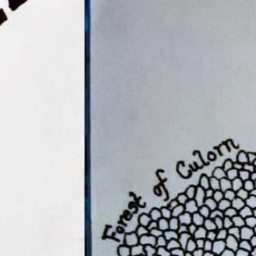 Forest of Culorn